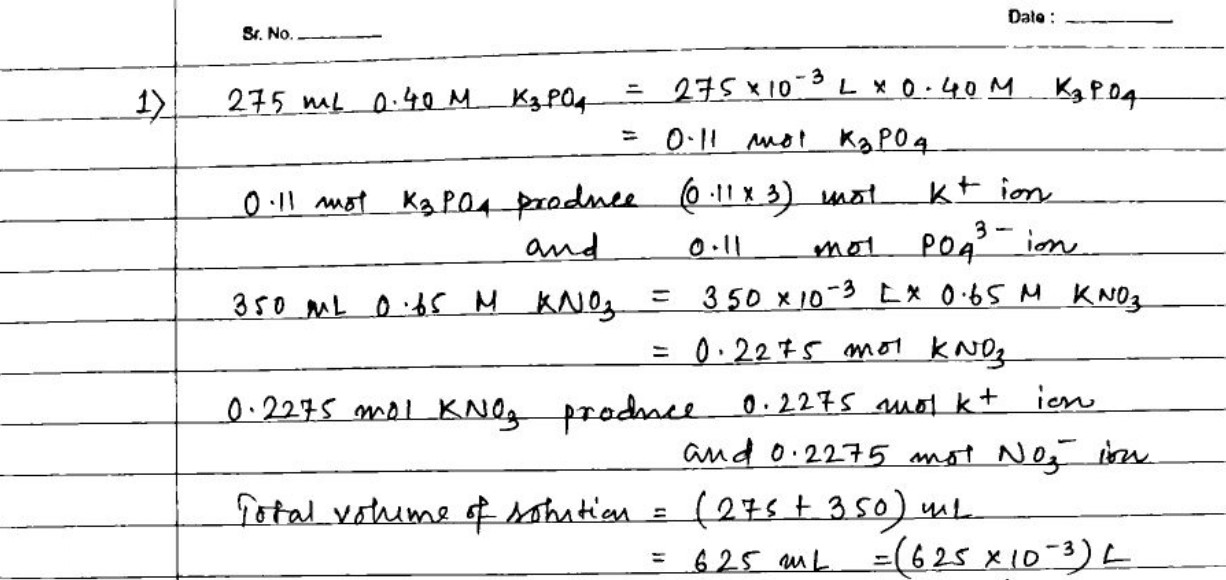 Sr. No. Date :
1) 275 mL 0.40 M K₃PO₄ = 275 × 10⁻³ L × 0.40 M K₃PO₄
= 0.11 mol K₃PO₄
0.11 mol K₃PO₄ produce (0.11 × 3) mol K⁺ ion
and 0.11 mol PO₄³⁻ ion
350 mL 0.65 M KNO₃ = 350 × 10⁻³ L × 0.65 M KNO₃
= 0.2275 mol KNO₃
0.2275 mol KNO₃ produce 0.2275 mol K⁺ ion
and 0.2275 mol NO₃⁻ ion
Total volume of solution = (275 + 350) mL
= 625 mL = (625 × 10⁻³) L